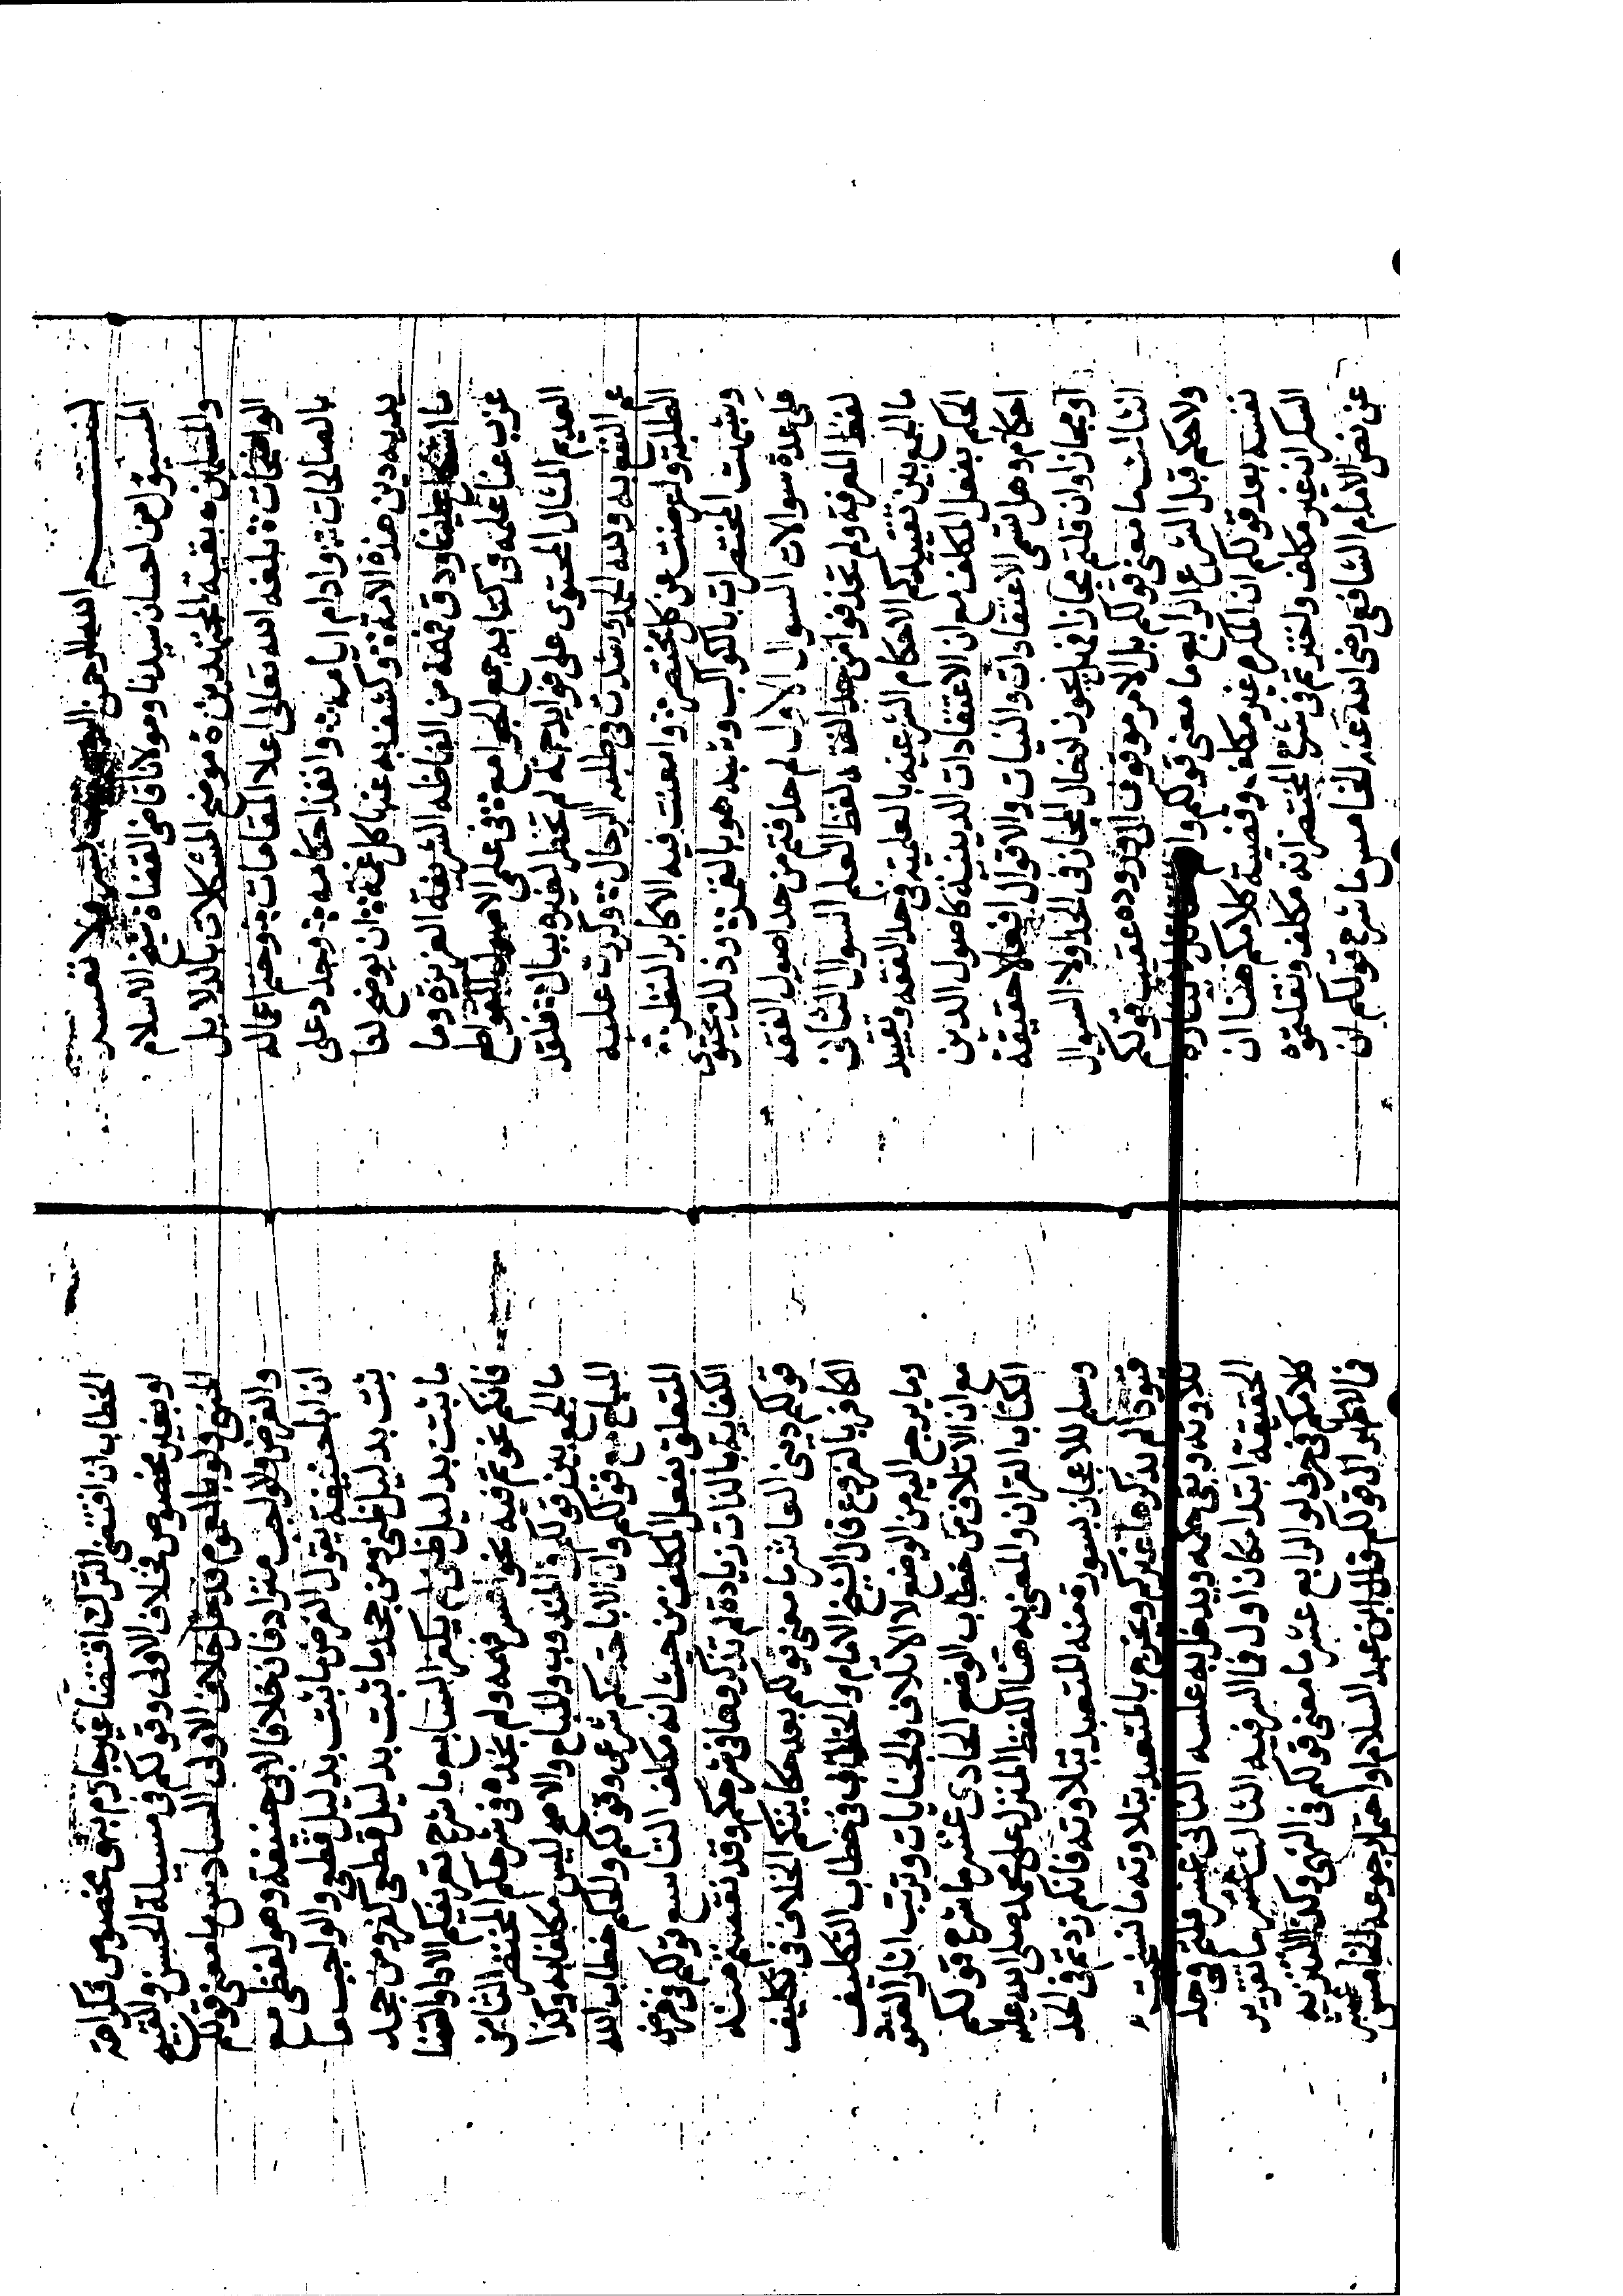 بسم الله الرحمن الرحيم رب يسر ولا تعسر
المسؤل من احسان سيدنا ومولانا قاضى القضاة شيخ الاسلام
والمسلمين بقية المجتهدين موضح المشكلات بالدلايل
الواضحات بلغه الله تعالى اعلا المقامات وختم اعماله
بالصالحات وادام ايامه وانفذ احكامه وجدد على
يديه دين هذه الامة وكشف به عنها كل غمة ان يوضح لنا
ما اشكل علينا ودق فهمه من الفاظه الشريفة العزيزة وما
عزب عنا علمه فى كتابه جمع الجوامع فى علمى الاصول
العديم المثال المحتوى على فوايد جمة لم تخطر لغيره ببال فلقد
عم النفع به ولله الحمد وشدت فى طلبه الرحال وكرت عليه
الطلبة ولم عن كل مختصر وامعنت فيه الاكابر النظر
وشبهت المختصرات بالكواكب وشبه هو بالقمر وذلك يحتوى
على عدة سوالات السوال الاول لم حذفتم من حد اصول الفقه
لفظ المعرفة ولم تحذفوا من حد الفقه لفظ العلم السوال الثانى
ما الجمع بين تقييدكم الاحكام الشرعية بالعلمية فى حد الفقه وتقييد
الحكم بفعل المكلف مع ان الاعتقادات الدينية كاصول الدين
احكام وهل تسمى الاعتقادات والنيات والاقوال افعالا حقيقة
او مجازا وان قلتم مجازا فهل يجوز ادخال المجاز فى الحد اولا السوال
الثالث ما معنى قولكم بل الامر موقوف الى وروده عقيب قولكم
ولا حكم قبل الشرع الرابع ما معنى قولكم
نفسه بعد قولكم ان المكره غير مكلف وقضية كلامكم هنا ان
السكران غير مكلف واخترتم فى شرح المختصر انه مكلف ونقلتموه
عن نص الامام الشافعى رضى الله عنه الخامس ما شرح قولكم ان
الخطاب ان اقتضى الترك اقتضا غير جازم بنهى مخصوص فكراهة
او بغير مخصوص فخلاف الاولى وقولكم فى مسيلة الحسن والقبيح
المنهى ولو بالعموم فدخل خلاف الاولى السادس ما معنى قولكم
والفرض والواجب مترادفان خلافا لابى حنيفة وهو لفظى مع
ان ابا حنيفة يقول الفرض ما ثبت بدليل قطعى والواجب ما
ثبت بدليل ظنى ومن جحد ما ثبت بدليل قطعى كفر ومن جحد
ما ثبت بدليل ظنى لم يكفر السابع ما شرح تعريفكم الادا والقضا
فانكم نحوتم فيه نحوا عسر فهمه ولم نجده فى شرحكم المختصر الثامن
ما الجمع بين قولكم والمندوب والمباح والاصح ليس مكلفا به وكذا
المباح مع قولكم وان الاباحة حكم شرعى وقولكم والحكم خطاب الله
المتعلق بفعل المكلف من حيث انه مكلف التاسع قولكم فى فرض
الكفاية بالذات زيادة لم تذكروها فى شرحكم وقد نقصتم منه
قولكم دينى العاشر ما معنى قولكم بعد حكايتكم الخلاف فى تكليف
الكافر بالفروع قال الشيخ الامام والخلاف فى خطاب التكليف
وما يرجع اليه من الوضع لا الاتلاف والجنايات وترتب اثار العقود
مع ان الاتلاف من خطاب الوضع الحادى عشر ما شرح قولكم
الكتاب القران والمعنى به هنا اللفظ المنزل على محمد صلى الله عليه
وسلم للاعجاز بسورة منه المتعبد بتلاوته فانكم زدتم فى الحد
قيودا لم يذكرها غيركم ويخرج بالمتعبد بتلاوته ما نسخت
تلاوته وبقى حكمه ويدخل به عكسه الثانى عشر قلتم فى حد
الحقيقة ابتدا مكان اول فما السر فيه الثالث عشر ما تقرير
كلامكم فى حرف لو الرابع عشر ما معنى قولكم فى النهى وكذا التنزيه
فى الاظهر الى قولكم قال ابن عبد السلام او احتمل رجوعه الخامس عشر